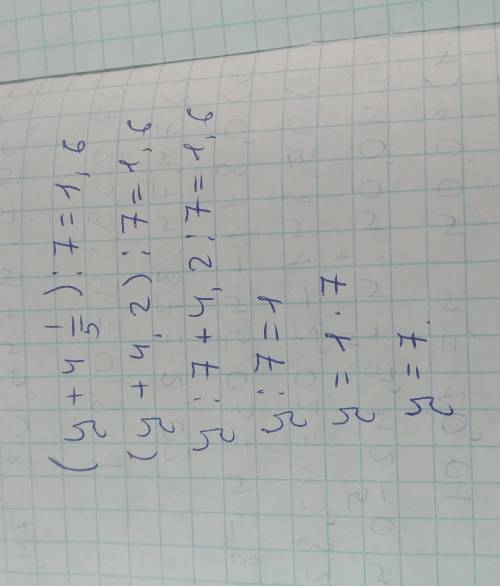 (y + 4 1/5) : 7 = 1,6
(y + 4,2) : 7 = 1,6
y : 7 + 4,2 : 7 = 1,6
y : 7 = 1
y = 1 · 7
y = 7.